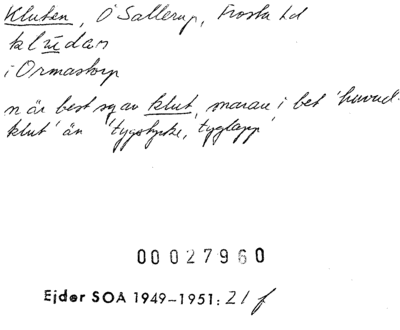 Kluten, Ö Sallerup, Frosta hd
klúdan
i Ormastorp
n är best sg av klut, snarare i bet 'huvud-
klut' än 'tygstycke, tyglapp'
00027960
Ejder SOA 1949–1951: 21 f